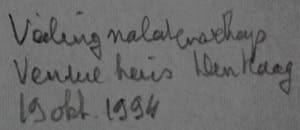 Veiling nalatenschap
Vendue huis Den Haag
19 okt. 1994